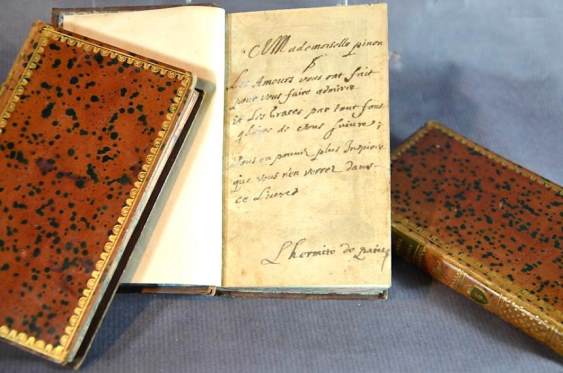 A Mademoiselle pinon
Les Amours vous ont fait
pour vous faire admirer
et Les Graces par tout font
gloire de vous suivre;
vous en pouvez plus Inspirer
que vous n'en verrez dans
ce Livre
Lhermite de